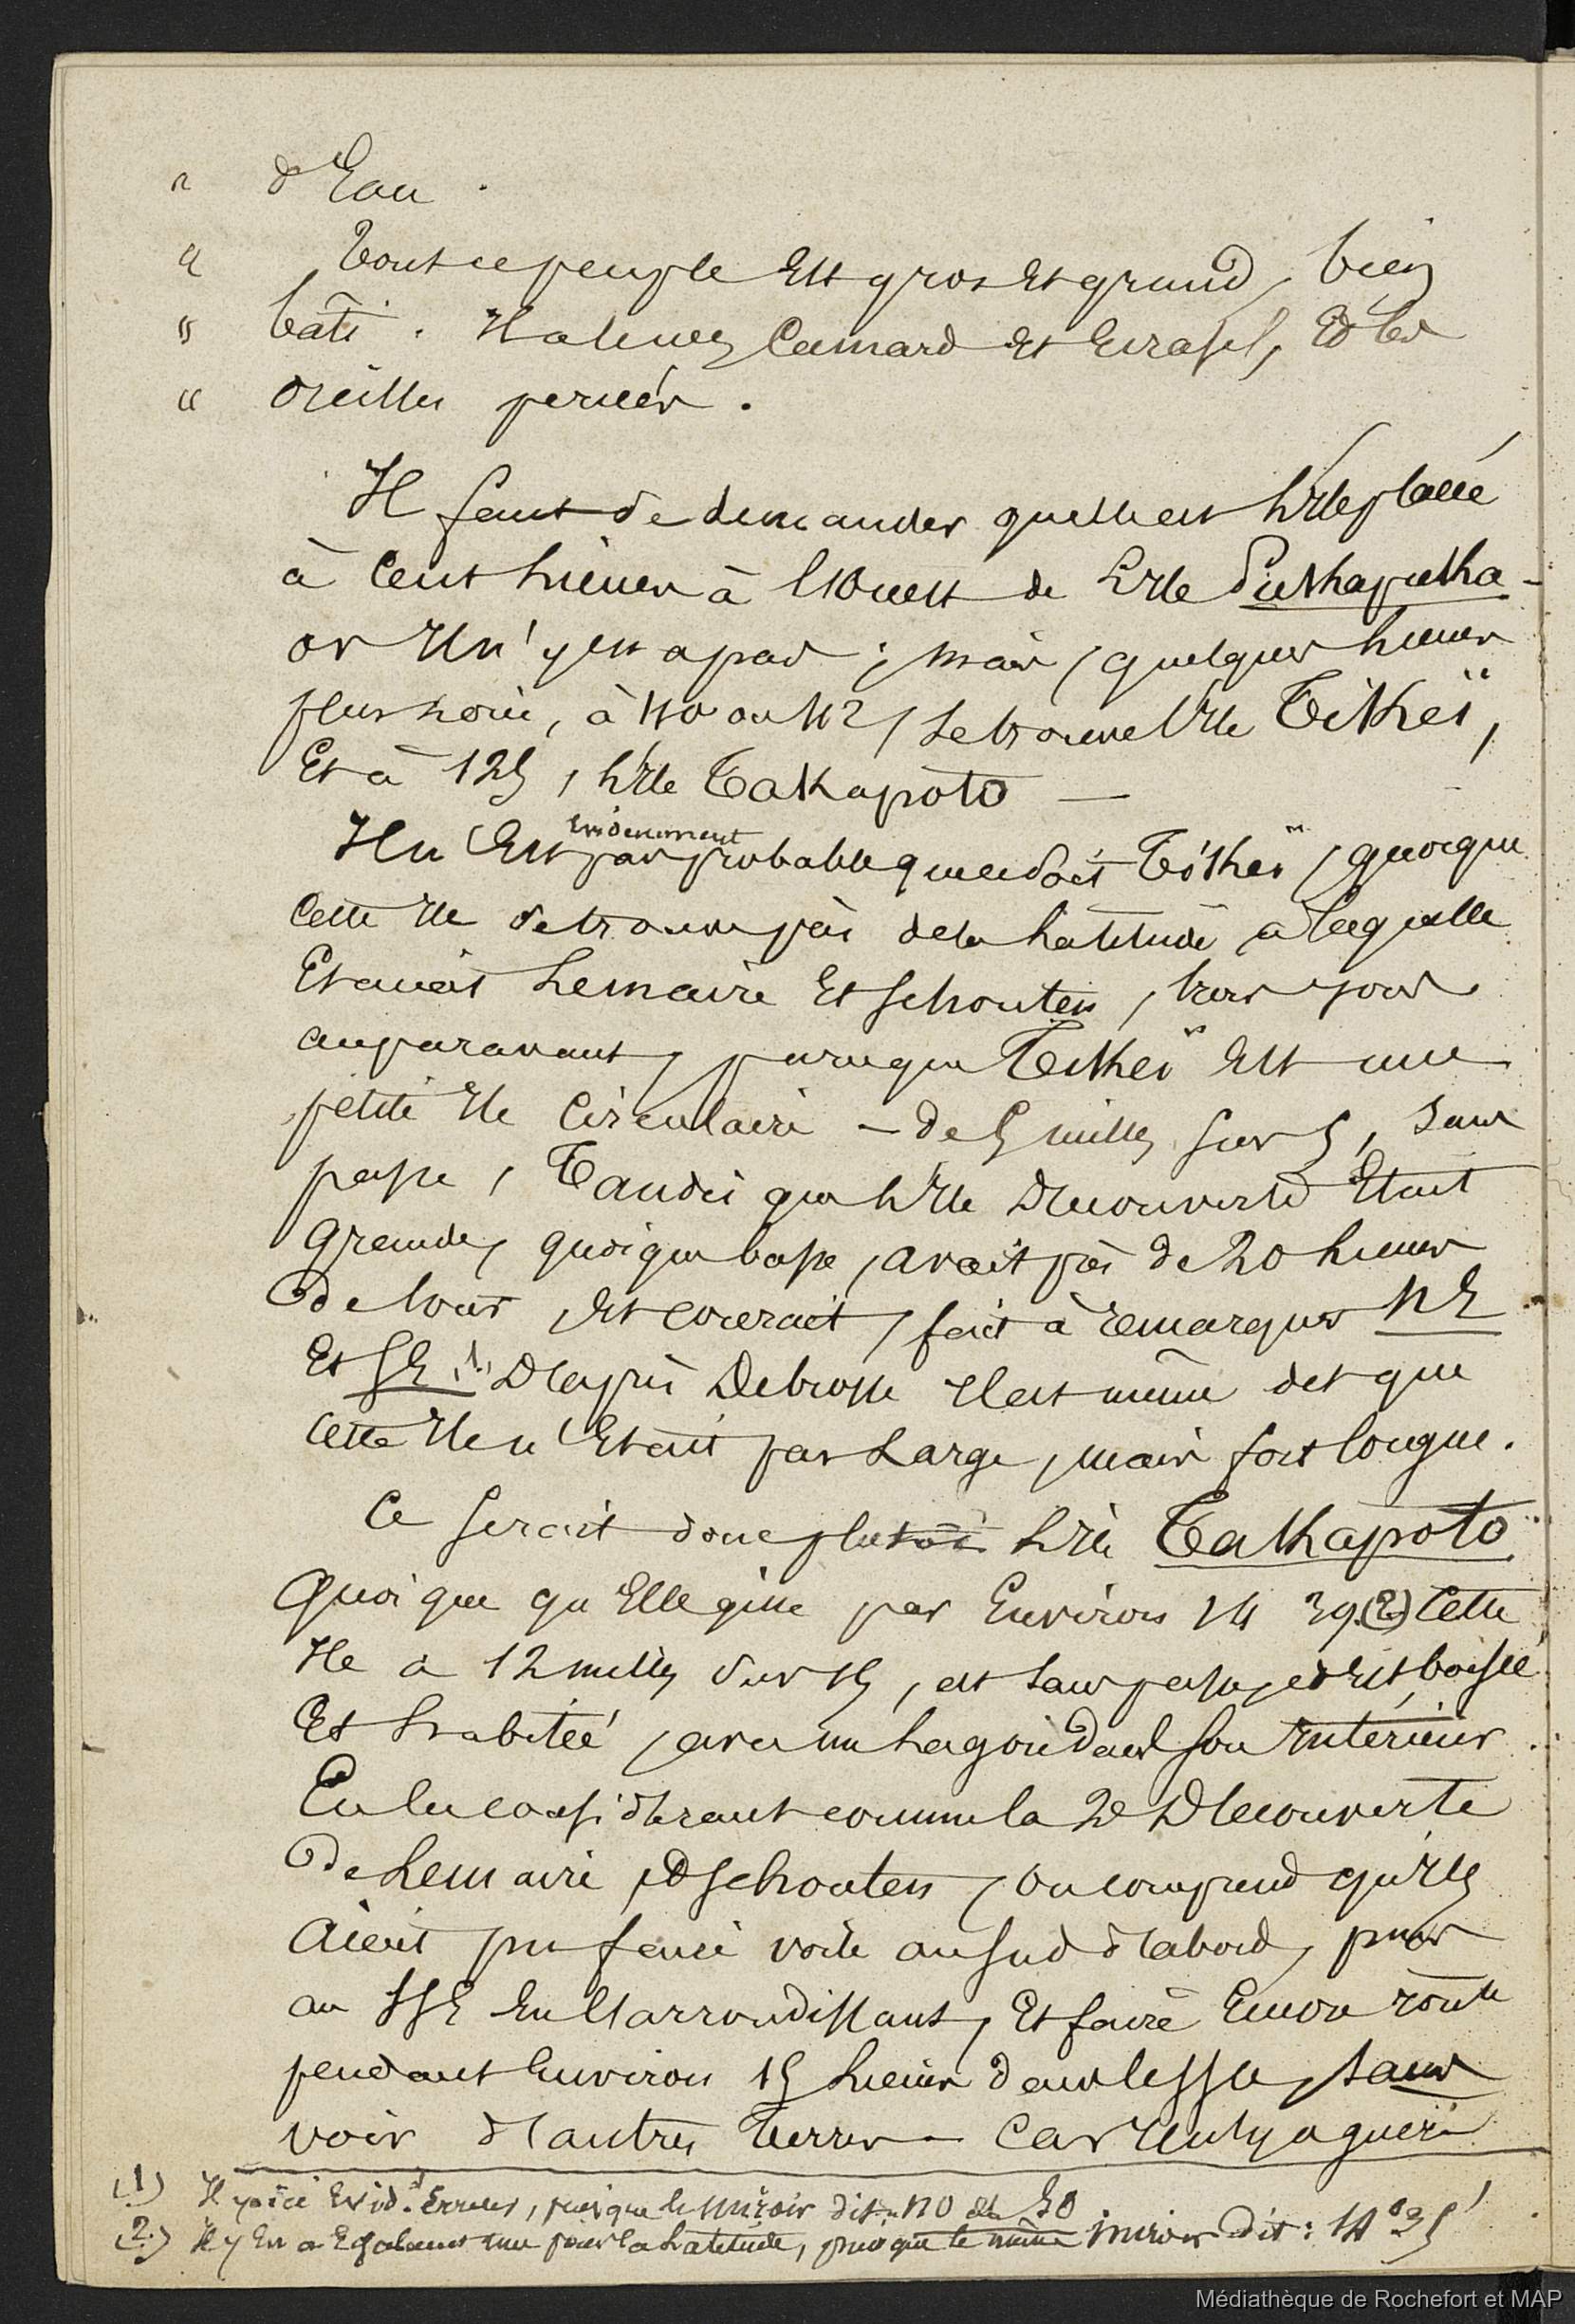 " d'Eau .
" Tout ce peuple Est gros Et grand, bien
" bâti . Il a le nez Camard Et Ecrasé, Et les
" oreilles percées .
Il faut se demander quelle est L'Ile placée
à Cent Lieues à l'Ouest de L'Ile Pukapuka -
or Il n'y en a pas ; mais, quelques Lieues
plus Loin, à 110 ou 112, se trouve l'Ile Tikeï,
Et à 125, L'Ile Takapoto —
Il n'Est Evidemment pas probable que ce soit Tikeï, quoique
Cette Ile se trouve près de la Latitude à laquelle
Etaient Lemaire Et Schouten, trois jours
auparavant, puisque Tikeï Est une
petite Ile Circulaire — de 5 milles sur 5, sans
passe, Tandis que L'Ile Découverte Etait
Grande, quoique basse, avait près de 20 Lieues
de tour, Et courait, fait à remarquer NE
Et SE (1.) D'après Debrosse Il est même dit que
Cette Ile n'Etait pas Large, mais fort longue.
Ce serait donc plutôt L'Ile Takapoto
Quoique qu'Elle gise par Environ 14 39. (2) Cette
Ile a 12 milles sur 15, est sans passe, et Est boisée
Et habitée, avec un Lagon dans son Intérieur.
En la considérant comme la 2e Découverte
de Lemaire et Schouten, on comprend qu'Ils
aient pu faire voile au Sud d'abord, puis
au SSE En l'arrondissant, Et faire Encore route
pendant Environ 15 Lieues dans le SSE, sans
voir d'autres Terres — Car Il n'y a guère
(1) Il y a ici Evidt. Erreur, puisque le Miroir dit : NO et SO
(2.) Il y En a Egalement une pour la Latitude, puisque le même Miroir dit : 14° 35'
Médiathèque de Rochefort et MAP